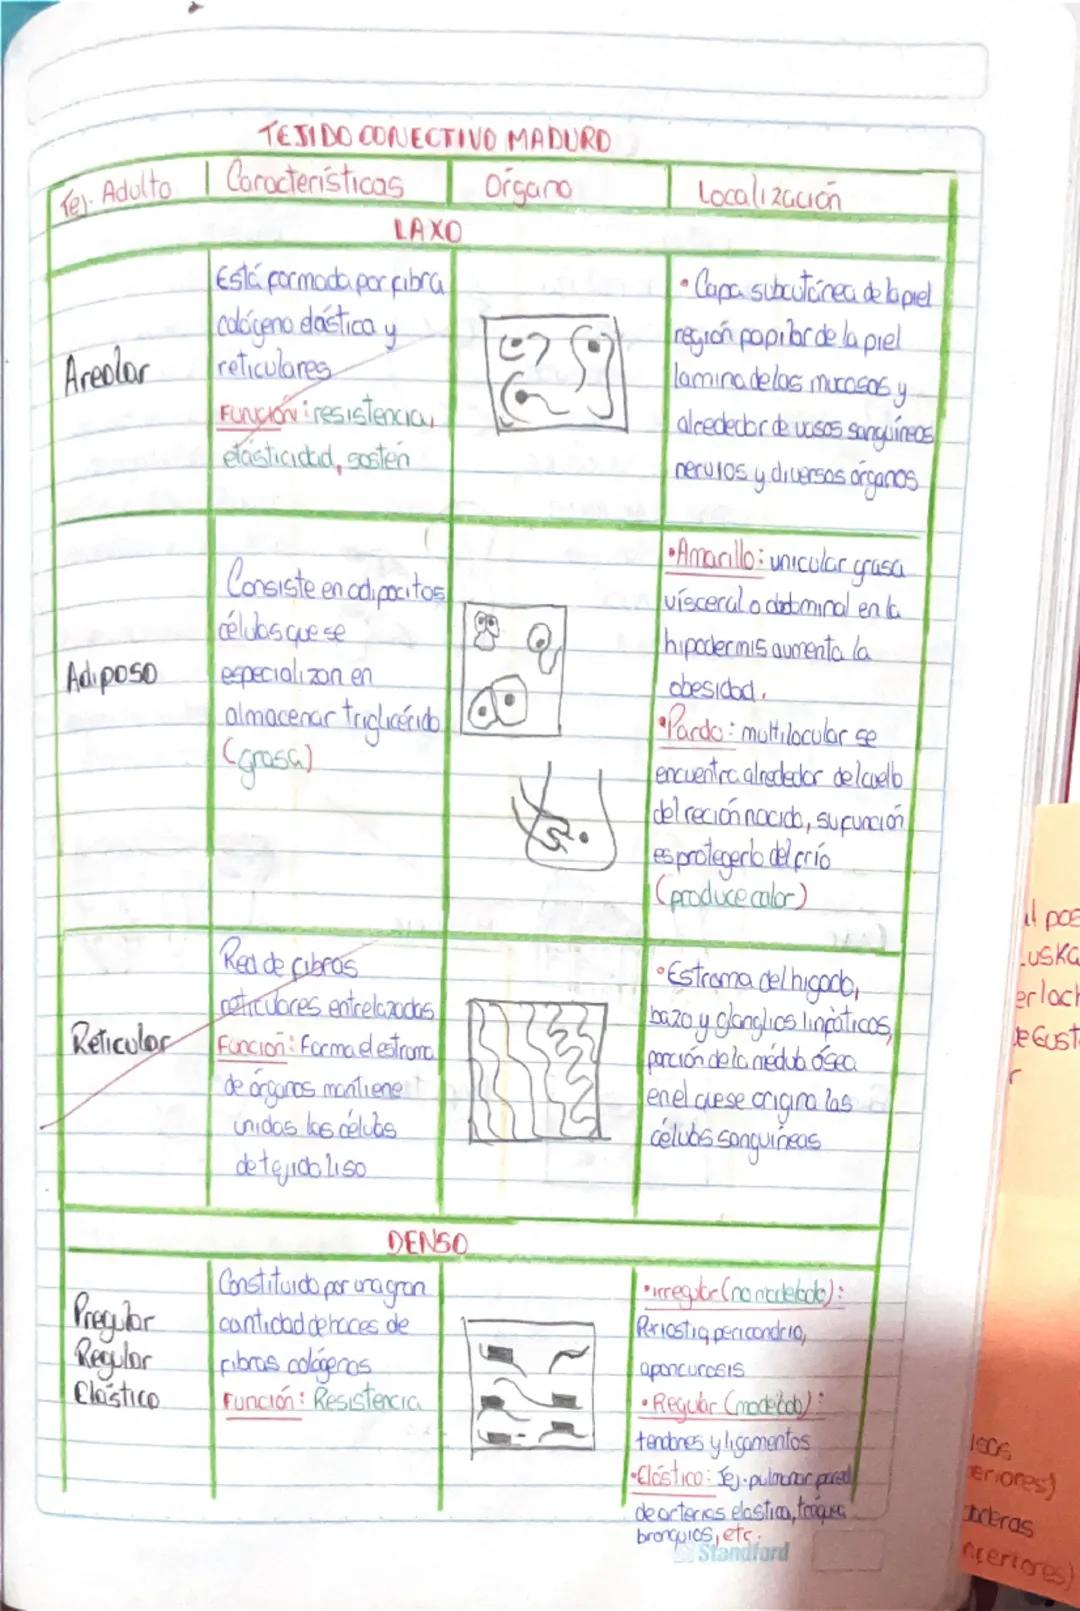 TEJIDO CONECTIVO MADURO
Tej. Adulto
Características
Organo
Localización
LAXO
Areolar
Está formada por fibra
colágeno elástica y
reticulares
Función: resistencia,
elasticidad, sosten
• Capa subcutánea de la piel
región papilar de la piel
lamina de las mucosas y
alrededor de vasos sanguíneos
nervios y diversos órganos
Adiposo
Consiste en adipocitos
células que se
especializan en
almacenar triglicérido
(grasa)
• Amarillo: unicular grasa
visceral o abdominal en la
hipodermis aumenta la
obesidad.
• Pardo: multilocular se
encuentra alrededor del cuello
del reción nacido, su función
es protegerlo del frío
(produce calor)
Reticular
Red de fibras
reticulares entrelazadas
Función: Forma el estroma
de órganos mantiene
unidas las células
de tejido liso
• Estroma del higado,
bazo y glanglios linfáticos,
porción de la médula ósea
en el que se origina las
células sanguineas
DENSO
Pregular
Regular
Elástico
Constituido por una gran
cantidad de haces de
fibras colágenas
Función: Resistencia
• irregular (no modelado):
Periostia, pericondrio,
aponeurosis
• Regular (modelado):
tendones y ligamentos
• Elástico: Tej. pulmonar pared
de arterias elastica, traquea
bronquios, etc.
Standford
l pos
uska
erlach
de Gust
r
eriores)